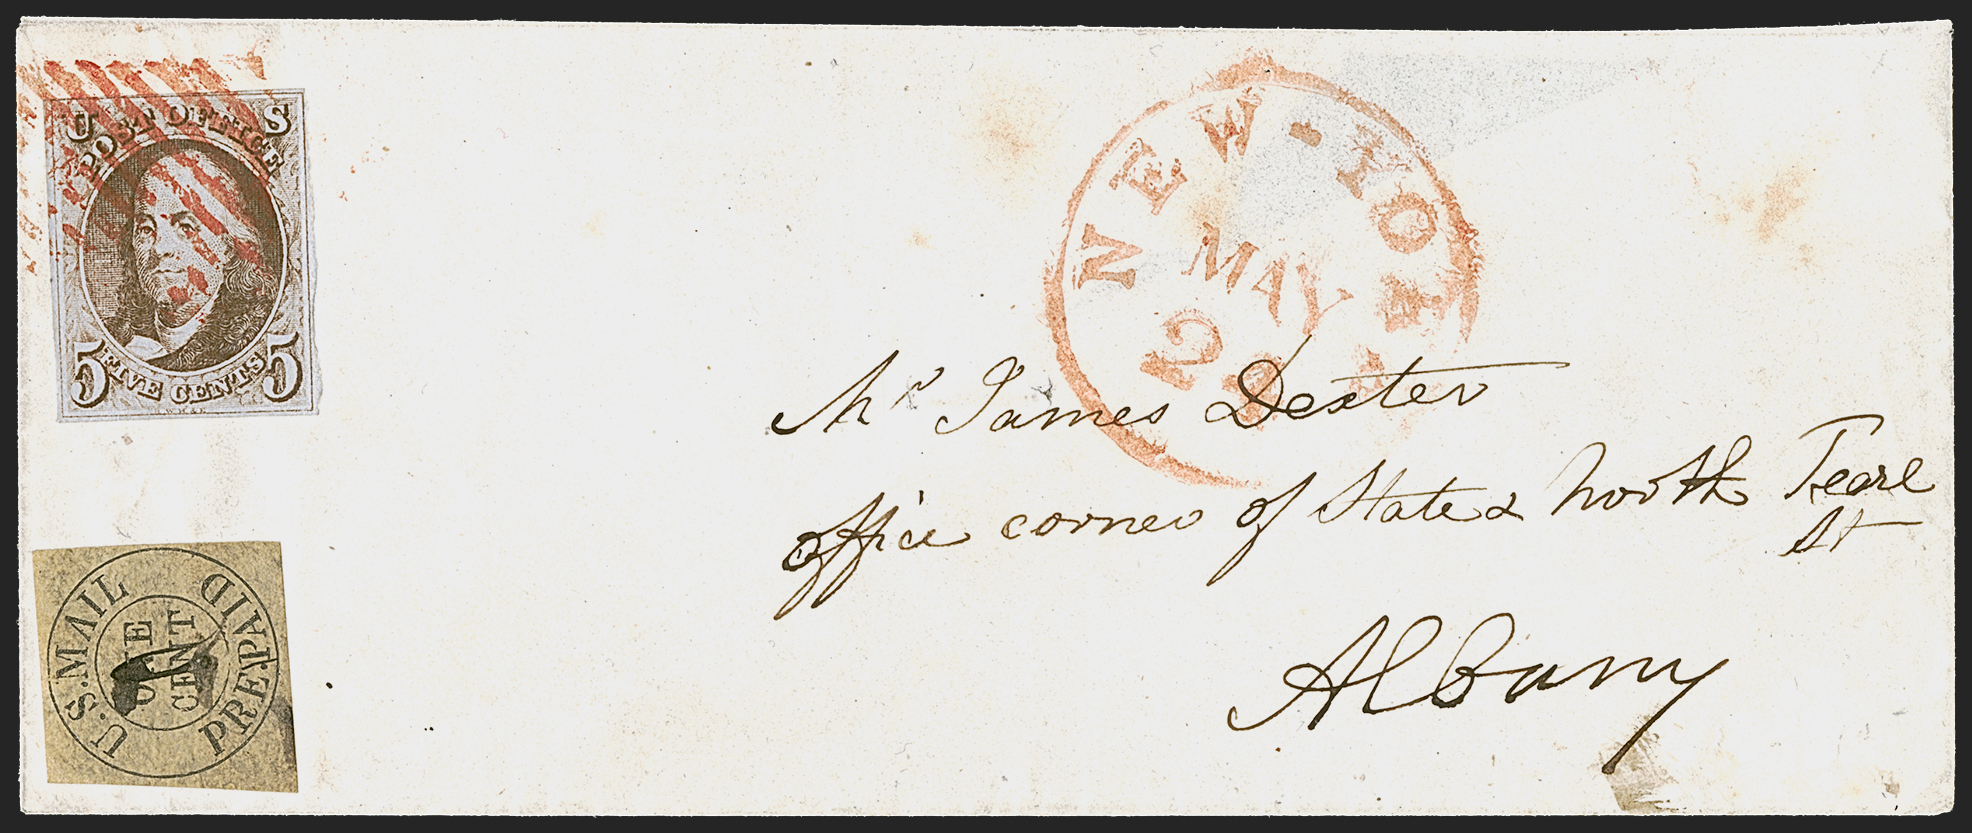 U S
POST OFFICE
5 FIVE CENTS 5
U.S. MAIL PREPAID
ONE
CENT
NEW-YORK
MAY
Mr James Dexter
office corner of State & North Pearl
St
Albany